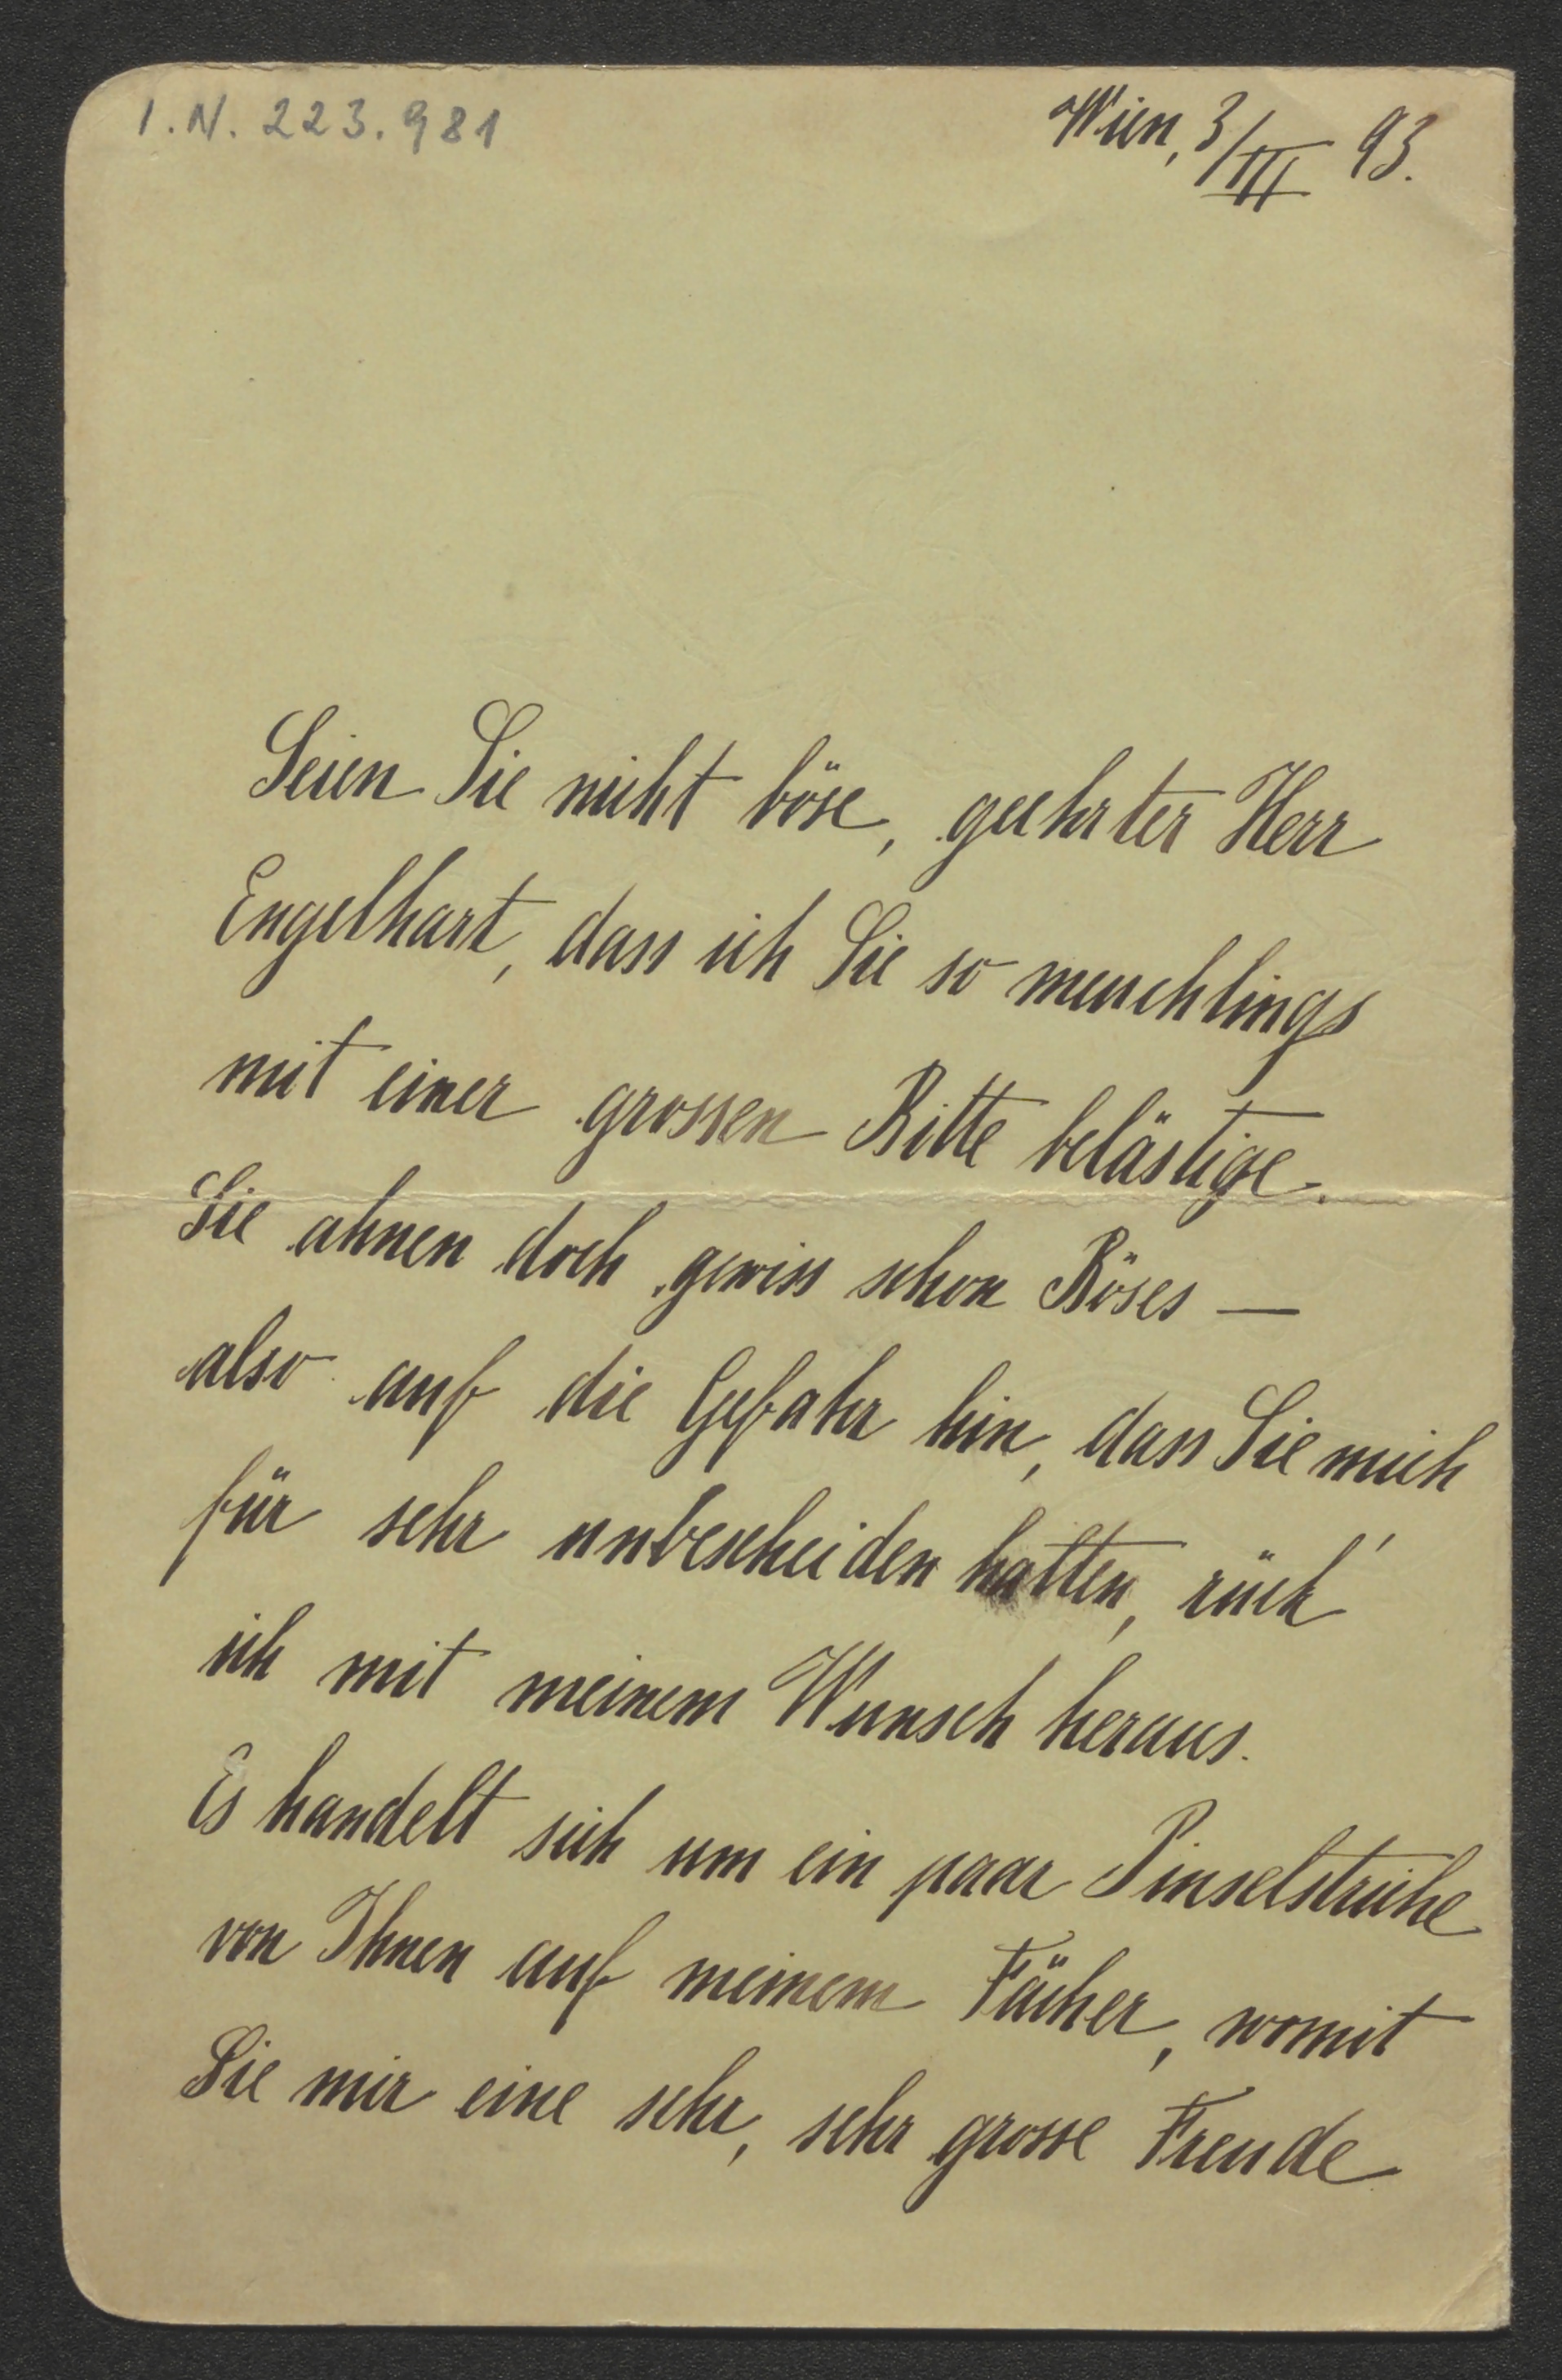 I.N. 223.981
Wien, 3/III 93.
Seien Sie nicht böse, geehrter Herr
Engelhart, dass ich Sie so meuchlings
mit einer grossen Bitte belästige.
Sie ahnen doch gewiss schon Böses —
also auf die Gefahr hin, dass Sie mich
für sehr unbescheiden halten, rück'
ich mit meinem Wunsch heraus.
Es handelt sich um ein paar Pinselstriche
von Ihnen auf meinem Fächer, womit
Sie mir eine sehr, sehr grosse Freude